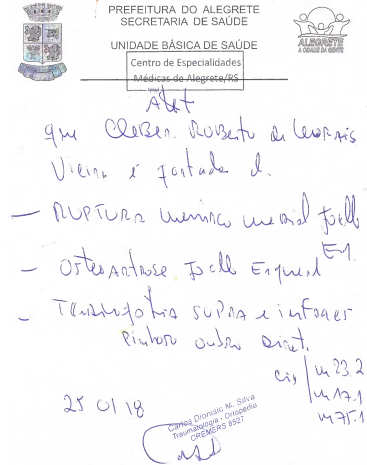 PREFEITURA DO ALEGRETE
SECRETARIA DE SAÚDE
UNIDADE BÁSICA DE SAÚDE
ALEGRETE
A CIDADE DA GENTE
Centro de Especialidades
Médicas de Alegrete/RS
que Cleber Roberto de Morais
Vieira é portador d.
— RUPTURA menisco medial Joelho
Esq
— Osteoartrose Joelho Esquerd
— supra e infraes
ombro Direit.
Cid m 23.2
m 17.1
m 75.1
25 01 18
Carlos Dionisio M. Silva
Traumatologia - Ortopedia
CREMERS 8527